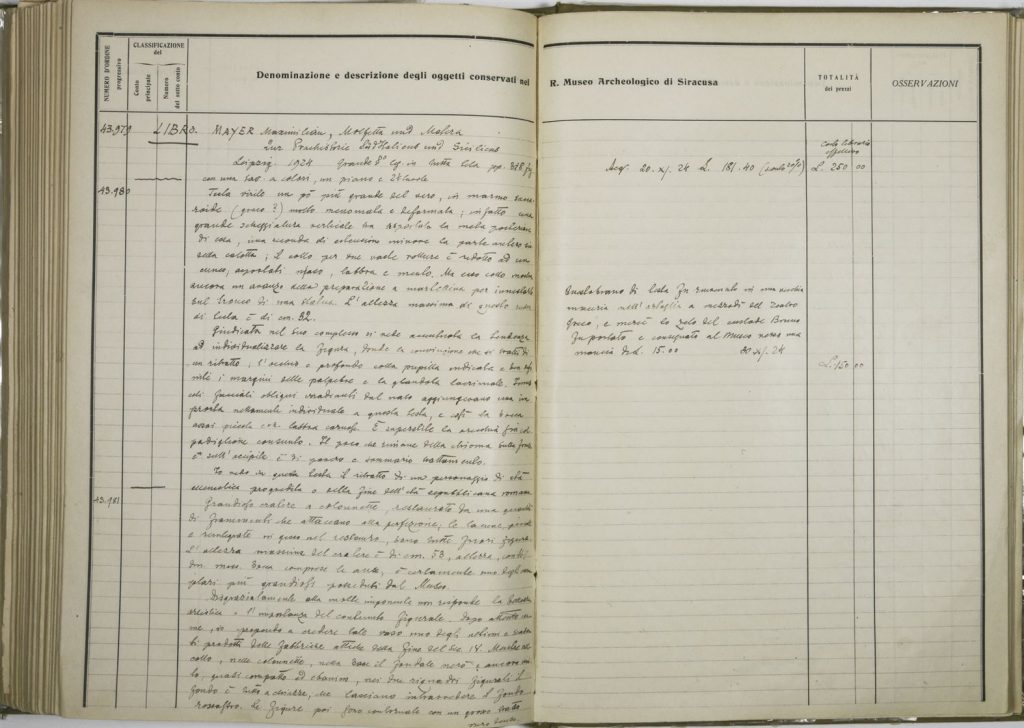 NUMERO D'ORDINE progressivo
CLASSIFICAZIONE del
Conto principale
Numero del sotto conto
Denominazione e descrizione degli oggetti conservati nel
R. Museo Archeologico di Siracusa
TOTALITÀ dei prezzi
OSSERVAZIONI
43.979 LIBRO. MAYER Maximilian, Molfetta und Matera
Zur Prachistorie Süditaliens und Siciliens
Leipzig. 1924 Grande 8° leg. in tutta tela pp.
con una tav. a colori, un piano e tavole
43.980
Testa virile un pò più grande del vero, in marmo
(greco?) molto menomata e deformata; infatto una
grande scheggiatura verticale ha asportata la metà posteriore
di essa, una seconda di estensione minore la parte
della calotta; il collo per due vaste rotture è ridotto ad un
cuneo, asportati naso, labbra e mento. Ma esso collo mostra
ancora un avanzo della preparazione a per innestarlo
sul tronco di una statua. L'altezza massima di questo
di testa è di cm. 32.
Giudicata nel suo complesso si vede la tendenza
ad individualizzare la figura, donde la convinzione che si tratti di
un ritratto; l'occhio è profondo colla pupilla indicata e
i margini delle palpebre e la glandola lacrimale.
obliqui irradianti dal naso aggiungevano una
pronta nettamente individuale a questa testa, e così la bocca
assai piccola con labbra carnose. È superstite la orecchia
padiglione consunto. Il poco che rimane della chioma sulla fronte
e sull'occipite è di povero e sommario trattamento.
Io vedo in questa testa il ritratto di un personaggio di età
ellenistica progredita o della fine dell'età repubblicana romana
43.981
Grandioso cratere a colonnette, restaurato da una quantità
di frammenti che attaccano alla perfezione; le lacune
e reintegrate in gesso nel restauro, sono tutte fuori figura.
L'altezza massima del cratere è di cm. 53,
bocca comprese le anse, è certamente uno degli
più grandiosi posseduti dal Museo.
Disgraziatamente alla mole imponente non risponde la bellezza
artistica e l'importanza del contenuto figurale. Dopo attento
io propendo a credere tale vaso uno degli ultimi e
prodotti delle fabbriche attiche della fine del sec.
collo, nelle colonnette, nella base il fondale nero è ancora
quasi compatto ed ebanino, nei due riquadri figurali il
fondo è tutto a chiazze, che lasciano intravvedere il fondo
rossastro. Le figure poi sono contornate con un grosso tratto
Acq. 20. XI. 24 L. 181.40 (sconto 20%)
Costo librario effettivo
L. 250 00
di testa fu rinvenuto in una vecchia
maceria nell'ortaglia a mezzodì del Teatro
Greco, e mercè lo zelo del custode Bruno
fu portato e consegnato al Museo verso una
mancia di L. 15.00 XI. 24
L. 150 00